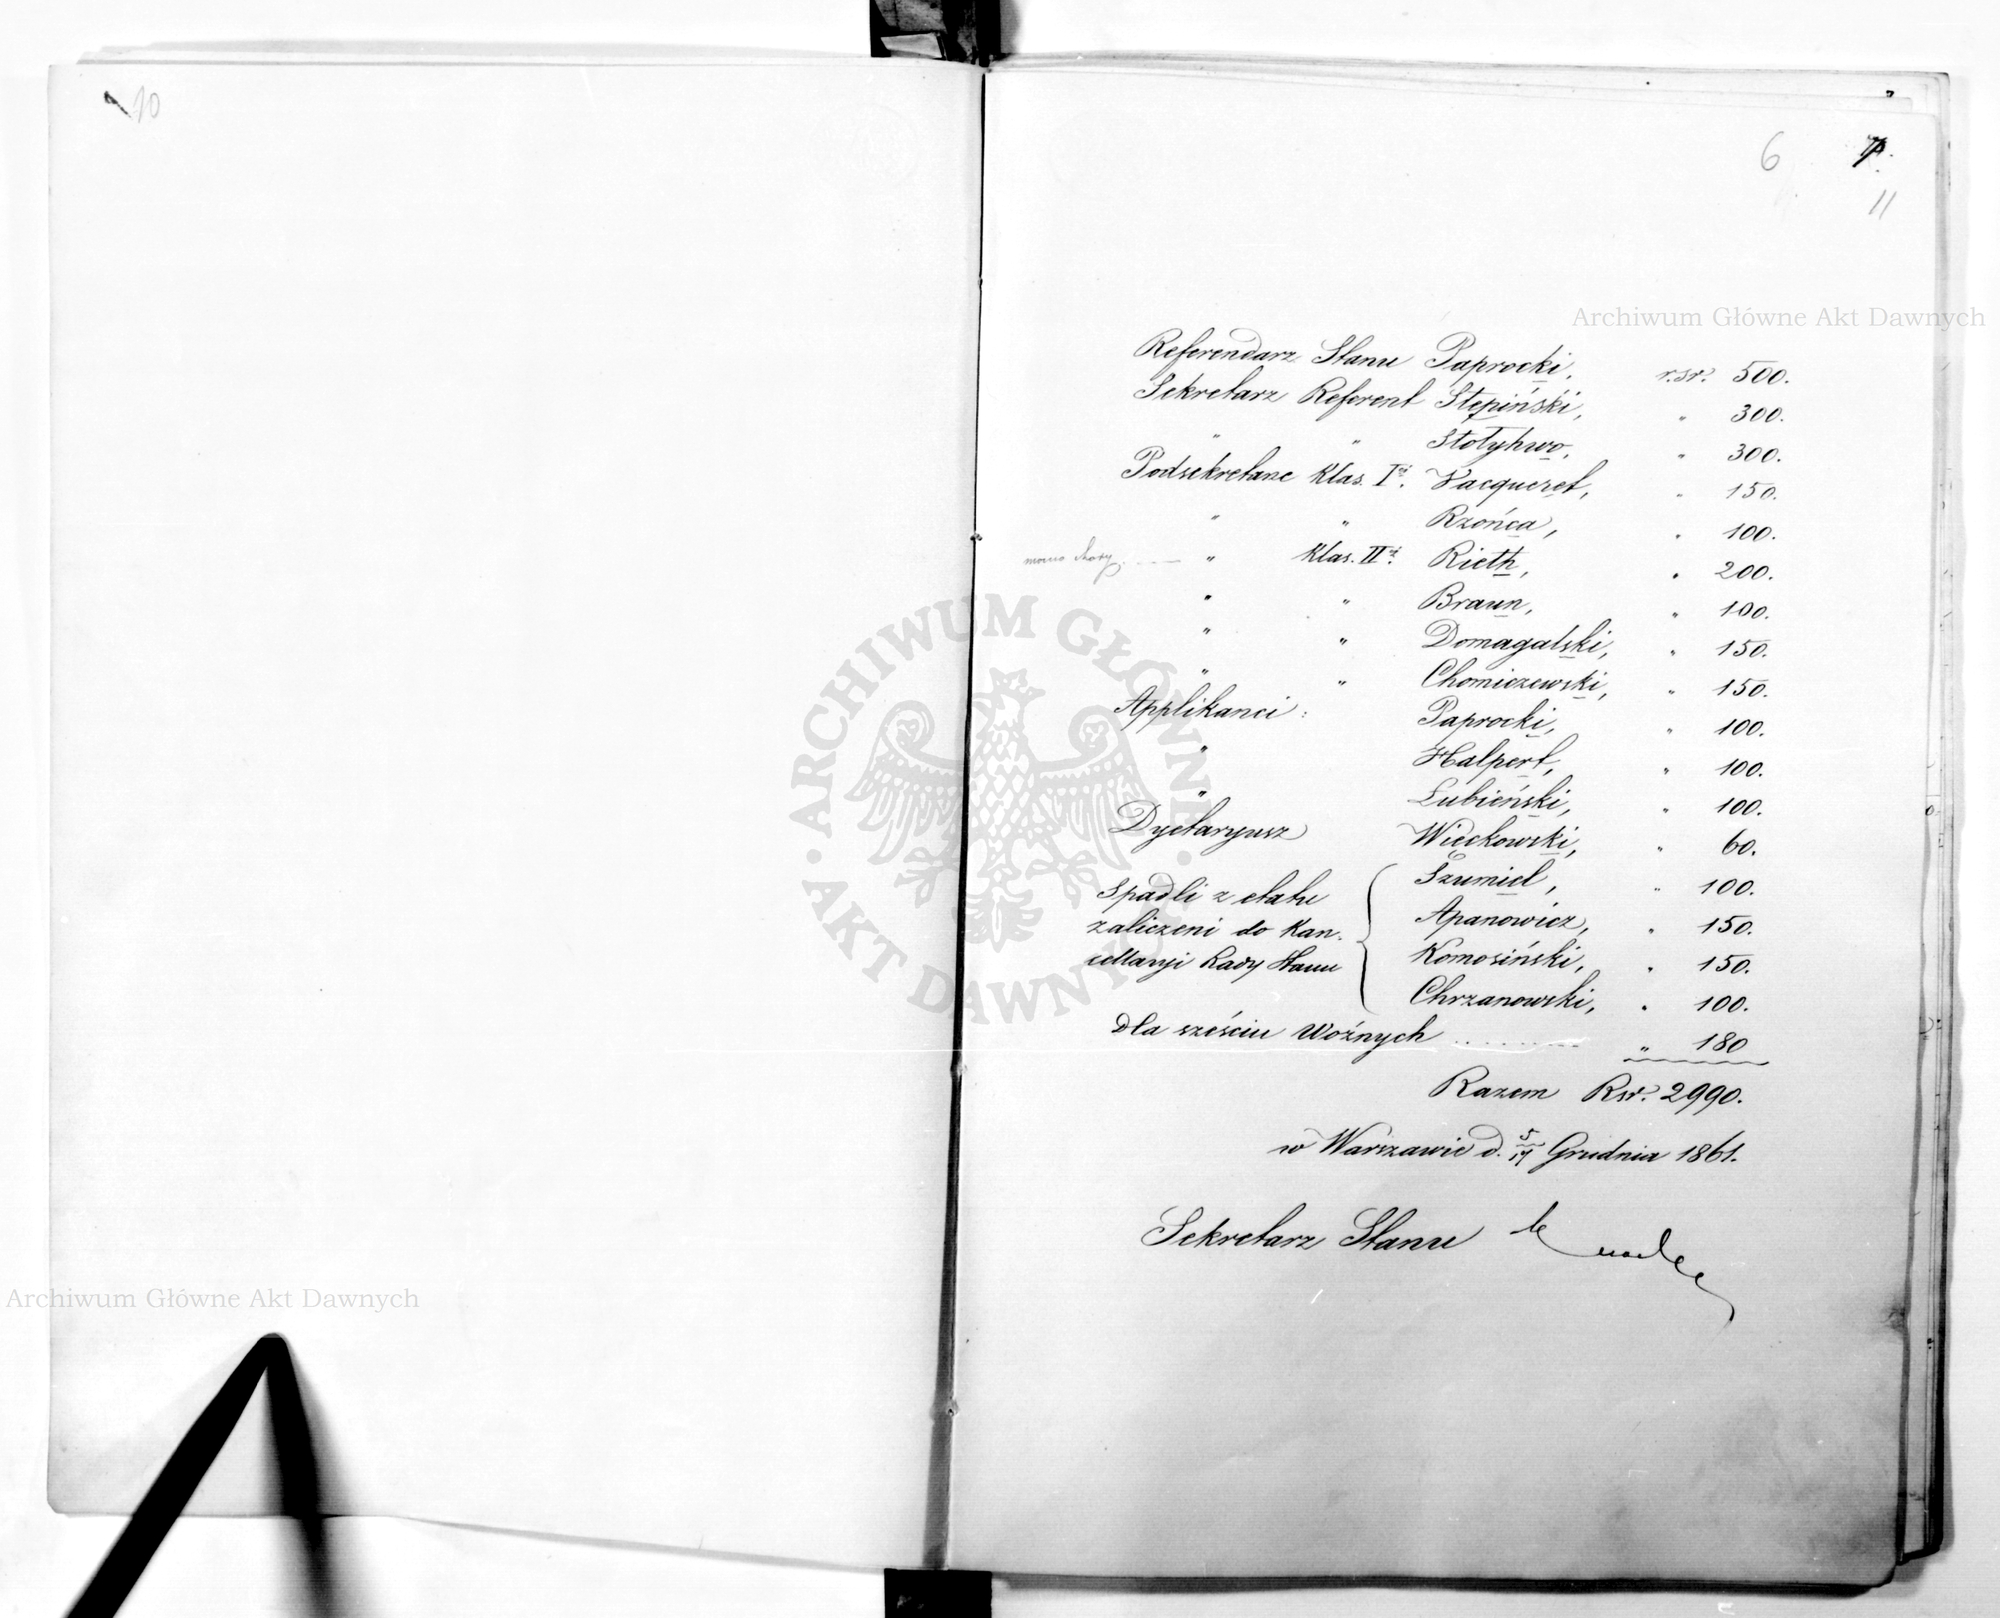 10
6
11
Archiwum Główne Akt Dawnych
Referendarz Stanu Paprocki, r.sr. 500.
Sekretarz Referent Stępiński, " 300.
" " Stołyhwo, " 300.
Podsekretarze klas. I éj. Vacqueret, " 150.
" " Rzońca, " 100.
mocno chory " klas. II éj. Rieth, " 200.
" " Braun, " 100.
" " Domagalski, " 150.
" " Chomiczewski, " 150.
Applikanci: Paprocki, " 100.
" Halpert, " 100.
" Łubieński, " 100.
Dyetaryusz Więckowski, " 60.
Spadli z etatu Szumiel, " 100.
zaliczeni do Kan- Apanowicz, " 150.
cellaryi Rady Stanu Komosiński, " 150.
Chrzanowski, " 100.
dla sześciu Woźnych " 180
Razem Rsr. 2990.
w Warszawie d. 5/17 Grudnia 1861.
Sekretarz Stanu
Archiwum Główne Akt Dawnych
ARCHIWUM GŁÓWNE · AKT DAWNYCH ·